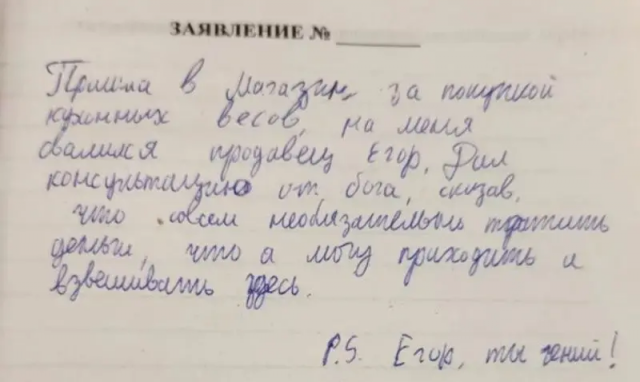 ЗАЯВЛЕНИЕ № ________
Пришла в магазин за покупкой
кухонных весов, на меня
свалился продавец Егор. Дал
консультацию от бога, сказав,
что совсем необязательно тратить
деньги, что я могу приходить и
взвешивать здесь.
P.S. Егор, ты гений!